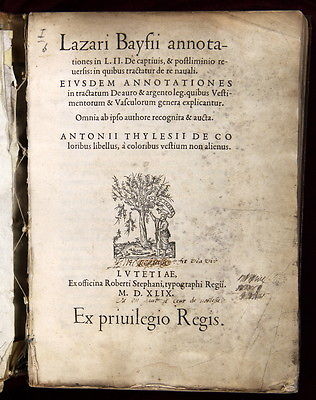 Lazari Bayfii annota-
tiones in L. II. De captiuis, & postliminio re-
uersis: in quibus tractatur de re nauali.
EIVSDEM ANNOTATIONES
in tractatum De auro & argento leg. quibus Vesti-
mentorum & Vasculorum genera explicantur.
Omnia ab ipso authore recognita & aucta.
ANTONII THYLESII DE CO
loribus libellus, à coloribus vestium non alienus.
LVTETIAE,
Ex officina Roberti Stephani, typographi Regii.
M. D. XLIX.
Ex priuilegio Regis.